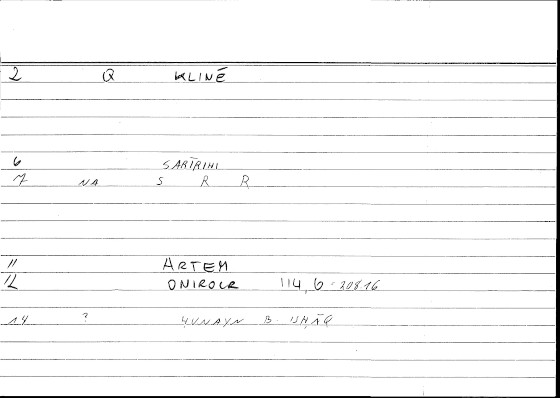 2 Q KLINĒ
6 SARĪRIHI
7 NA S R R
11 ARTEM
12 ONIROCR 114,6-20816
14 ? HUNAYN B. ISHĀQ